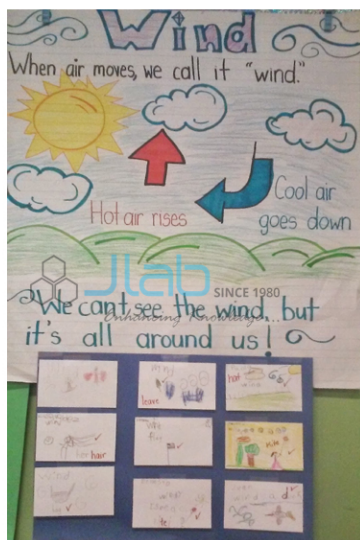 Wind
When air moves, we call it "wind."
Hot air rises
Cool air
goes down
Jlab
SINCE 1980
Enhancing Knowledge...
We can't see the wind, but
it's all around us!
leave
hat
her hair
flag